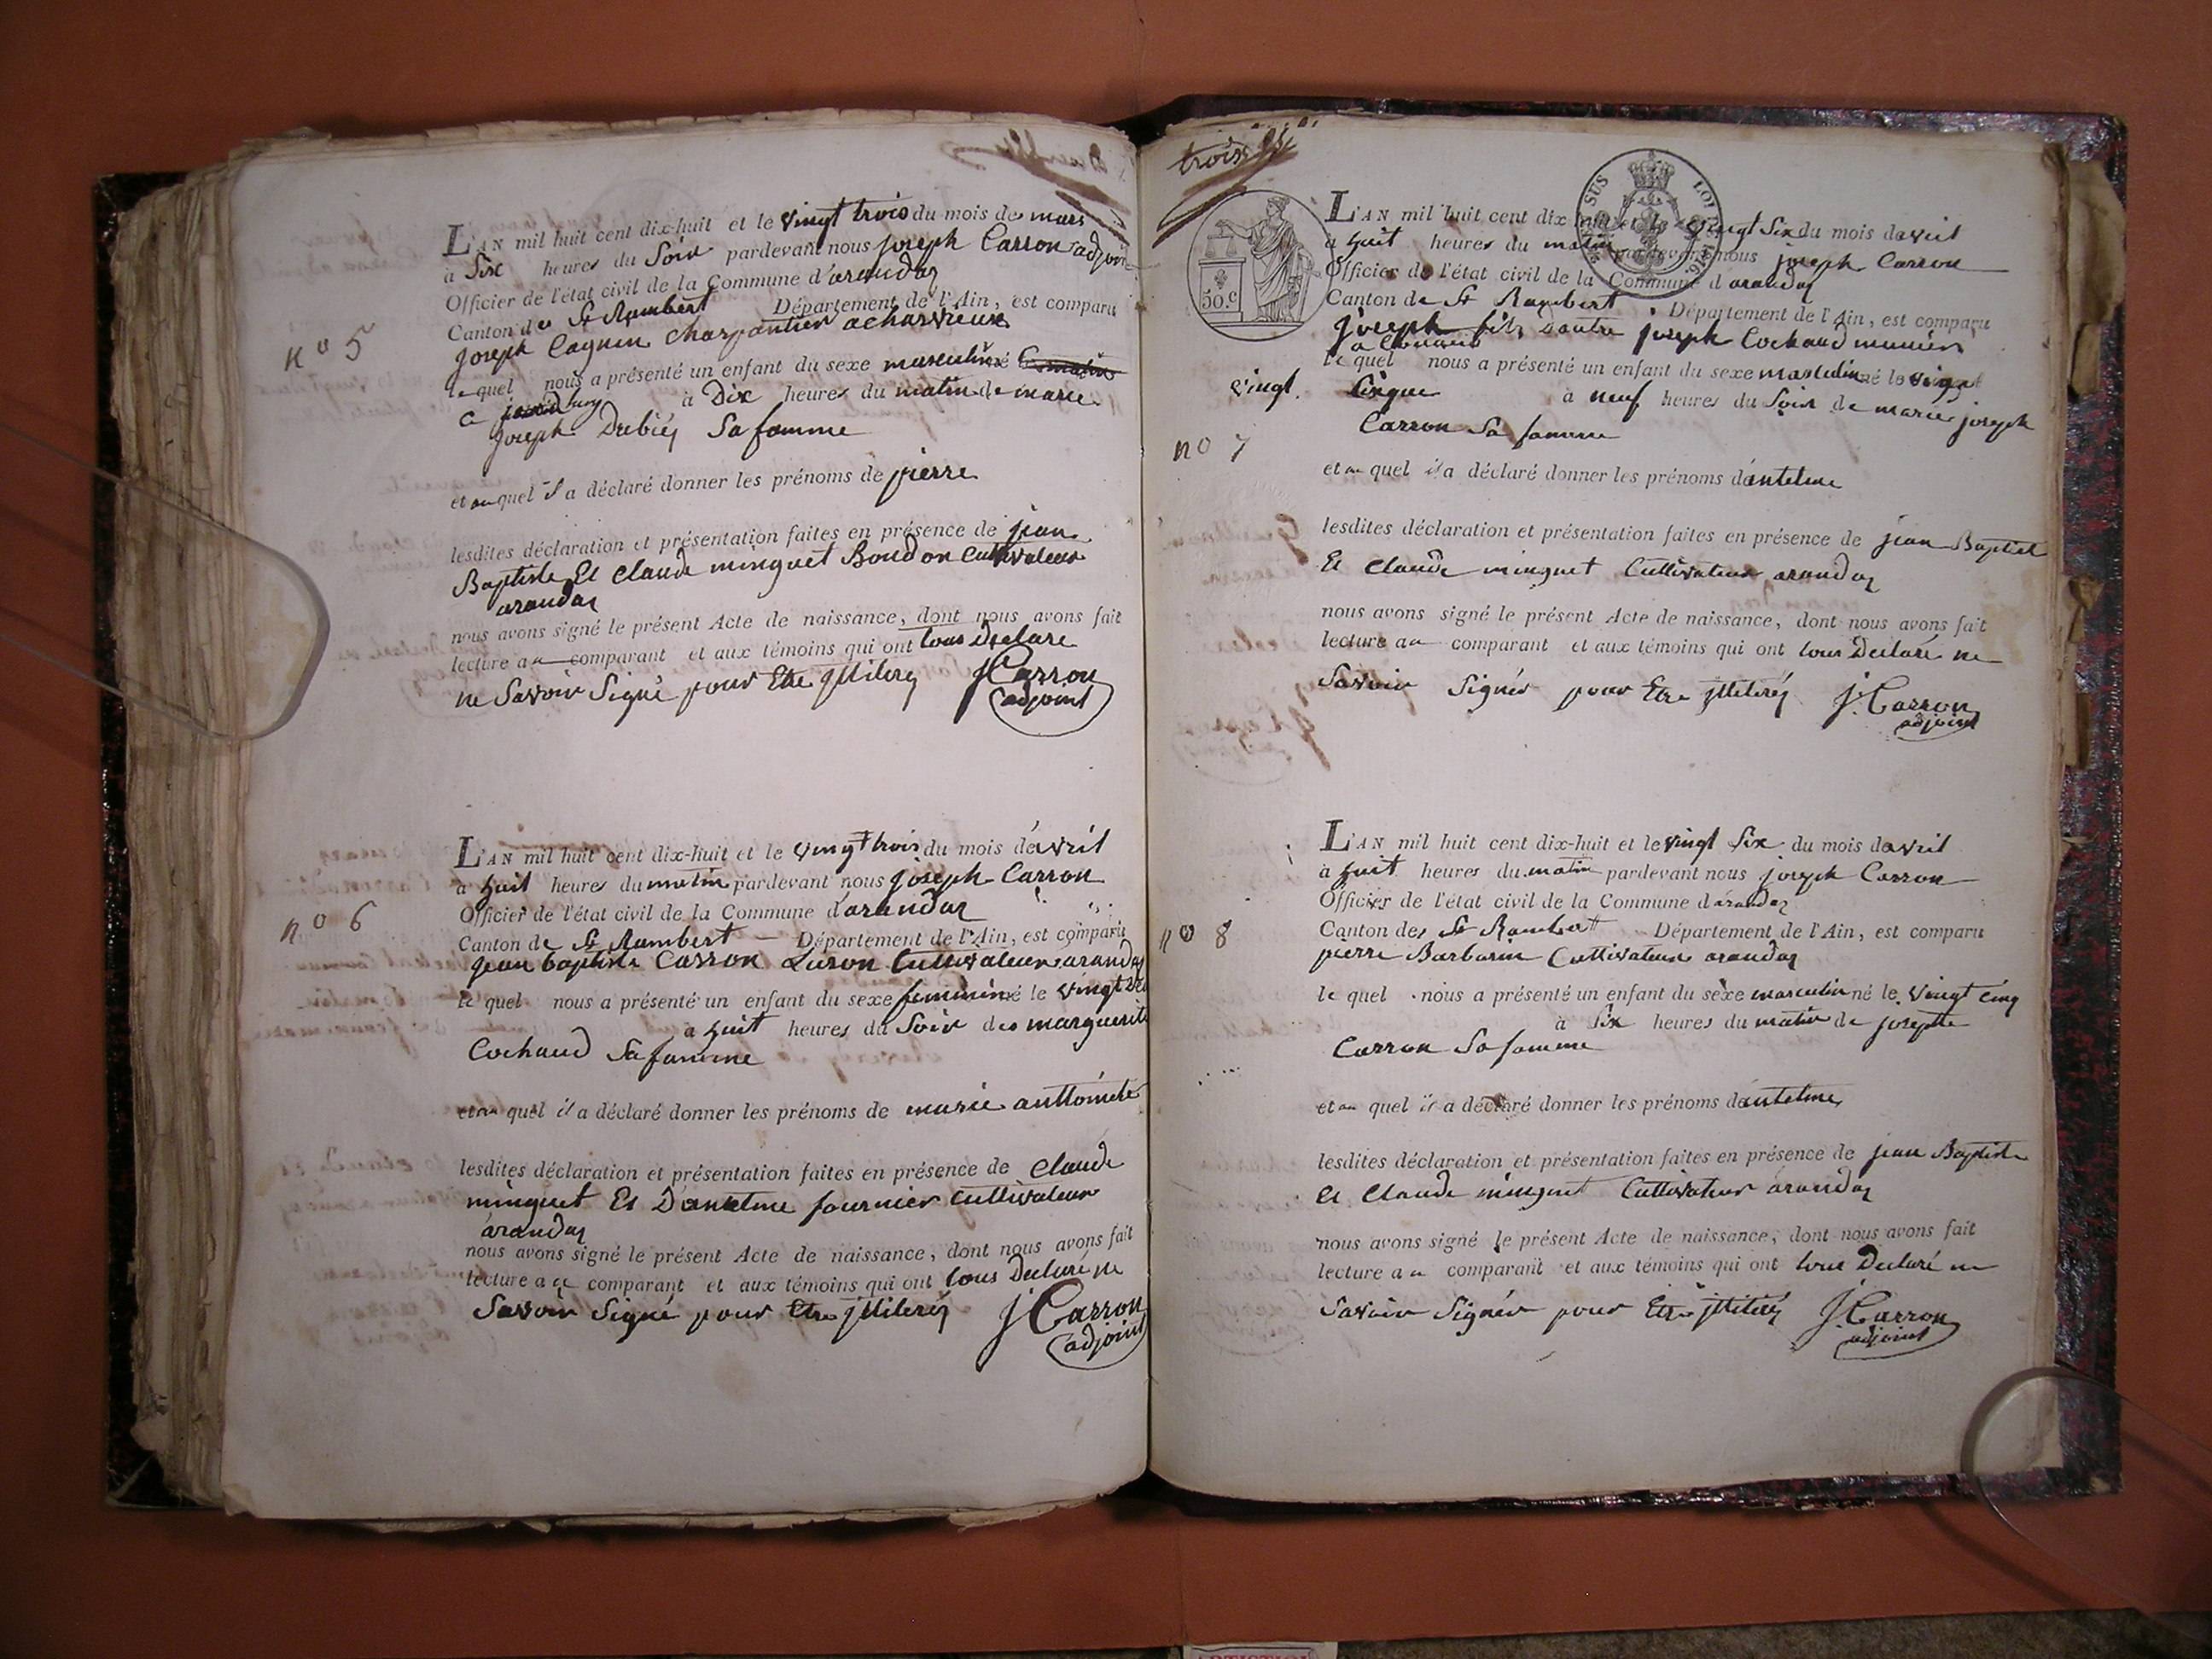 L'AN mil huit cent dix-huit et le vingt trois du mois de mars
à Six heures du Soir pardevant nous joseph Carron adjoint
Officier de l'état civil de la Commune d'arandas
Canton de St Rambert Département de l'Ain, est comparu
joseph Cagnin charpantier acharvieux
no 5
le quel nous a présenté un enfant du sexe masculin né
à Dix heures du matin de marie
joseph Dubiéz Sa famme
et au quel il a déclaré donner les prénoms de pierre
lesdites déclaration et présentation faites en présence de jean
Baptiste Et Claude minguet Boudon Cultivateur
arandas
nous avons signé le présent Acte de naissance, dont nous avons fait
lecture au comparant et aux témoins qui ont tous Déclaré
ne Savoir Signé pour Etre jlliterez J Carron
adjoint
L'AN mil huit cent dix-huit et le vingt trois du mois d'avril
à huit heures du matin pardevant nous joseph Carron
Officier de l'état civil de la Commune d'arandas
no 6
Canton de St Rambert Département de l'Ain, est comparu
jean baptiste Carron Luron Cultivateur arandas
le quel nous a présenté un enfant du sexe feminin né le vingt
à huit heures du Soir de marguerite
Cochaud Sa famme
et au quel il a déclaré donner les prénoms de marie anttoinete
lesdites déclaration et présentation faites en présence de Claude
minguet Et D'antelme fournier Cultivateur
arandas
nous avons signé le présent Acte de naissance, dont nous avons fait
lecture a comparant et aux témoins qui ont tous Declaré ne
Savoir Signé pour Etre jlliteréz J Carron
adjoint
trois
SUS LOI 1816
50.c
L'AN mil huit cent dix huit et le vingt Six du mois davril
à huit heures du matin pardevant nous joseph Carron
Officier de l'état civil de la Commune d arandas
Canton de St Rambert Département de l'Ain, est comparu
joseph fils dautre joseph Cochaud munier
le quel nous a présenté un enfant du sexe masculin né le vingt
vingt. Cinque à neuf heures du Soir de marie joseph
Carron Sa famme
no 7
et au quel il a déclaré donner les prénoms d'antelme
lesdites déclaration et présentation faites en présence de jean Baptist
Et Claude minguet Cultivateur arandas
nous avons signé le présent Acte de naissance, dont nous avons fait
lecture au comparant et aux témoins qui ont tous Déclaré ne
Savoir Signér pour Etre jlliteréz J. Carron
adjoint
L'AN mil huit cent dix-huit et le vingt Six du mois davril
à huit heures du matin pardevant nous joseph Carron
Officier de l'état civil de la Commune d'arandas
no 8
Canton de St Rambert Département de l'Ain, est comparu
pierre Barbarin Cultivateur arandas
le quel nous a présenté un enfant du sèxe masculin né le vingt cinq
à Six heures du matin de josephte
Carron Sa famme
et au quel il a déclaré donner les prénoms d'antelme
lesdites déclaration et présentation faites en présence de jean Baptiste
Et Claude minguet Cultivateur arandas
nous avons signé le présent Acte de naissance, dont nous avons fait
lecture au comparant et aux témoins qui ont tous Declaré ne
Savoir Signér pour Etre jlliteréz J. Carron
adjoint